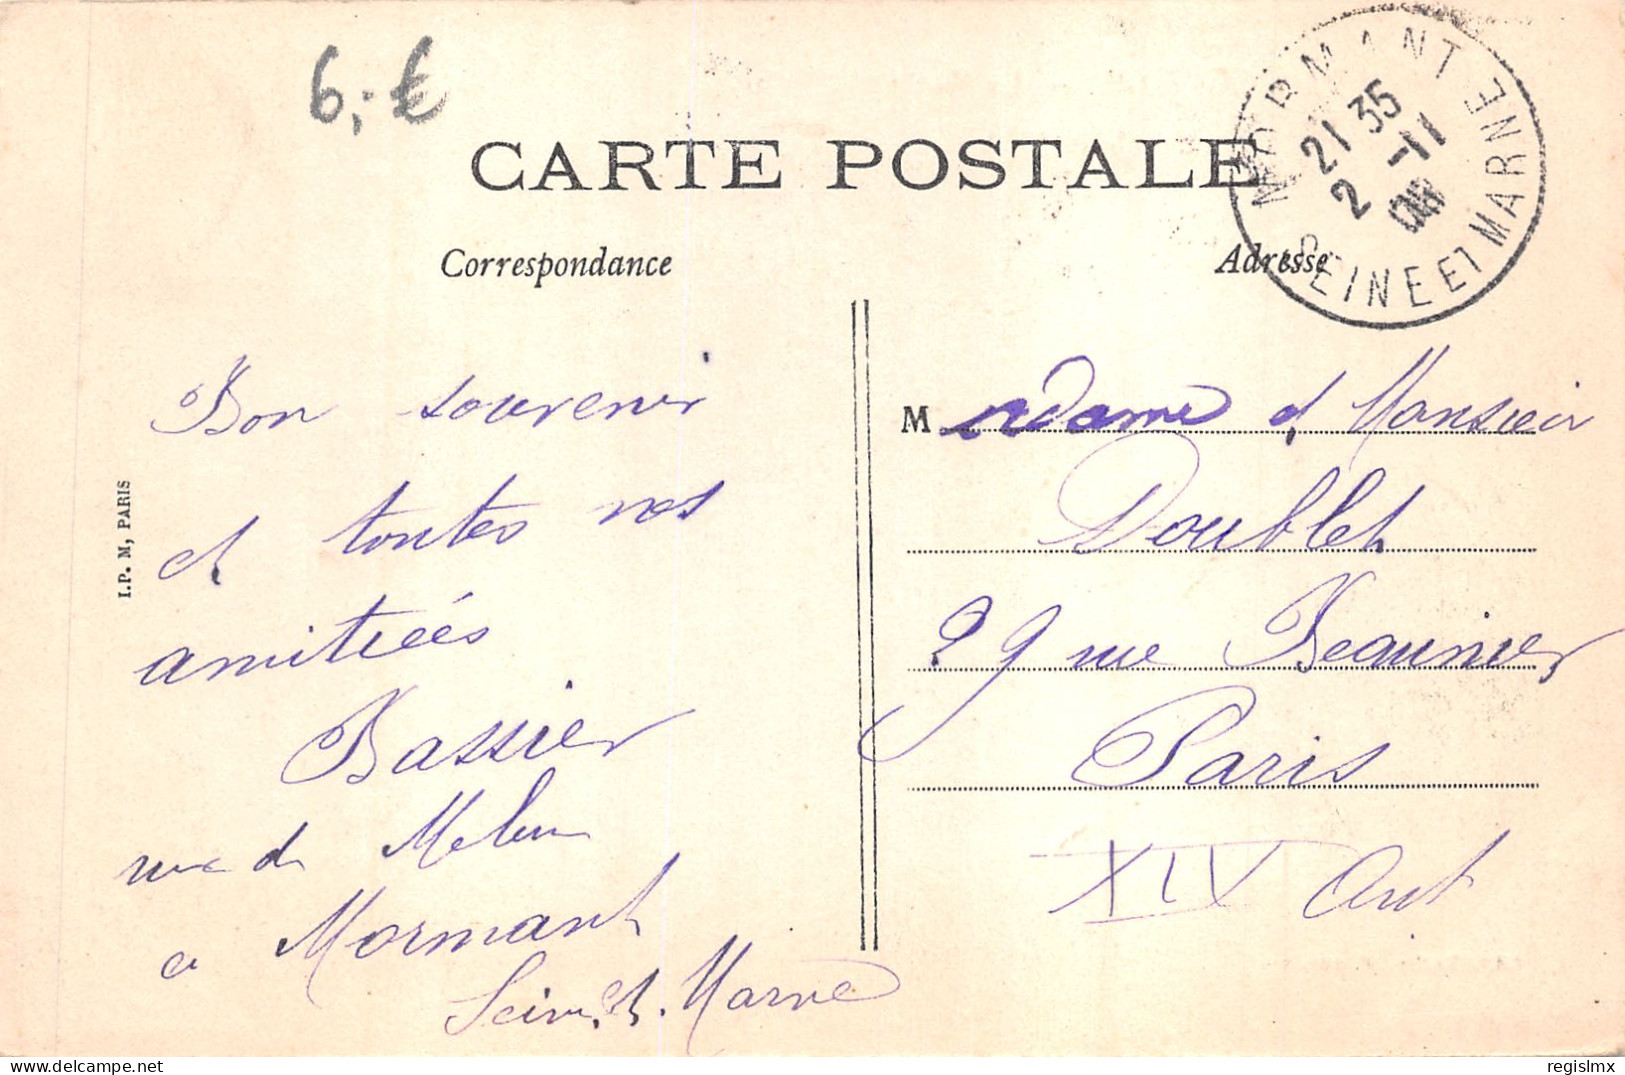 6,-€
CARTE POSTALE
Correspondance
Adresse
MORMANT
21 35
2 -11
SEINE ET MARNE
Bon souvenir
et toutes nos
amitiées
Bassier
rue de Melun
a Mormant
Seine et Marne
I.P. M, PARIS
Madame et Monsieur
Doublet
29 rue Beaunier
Paris
XIV Art
regislmx